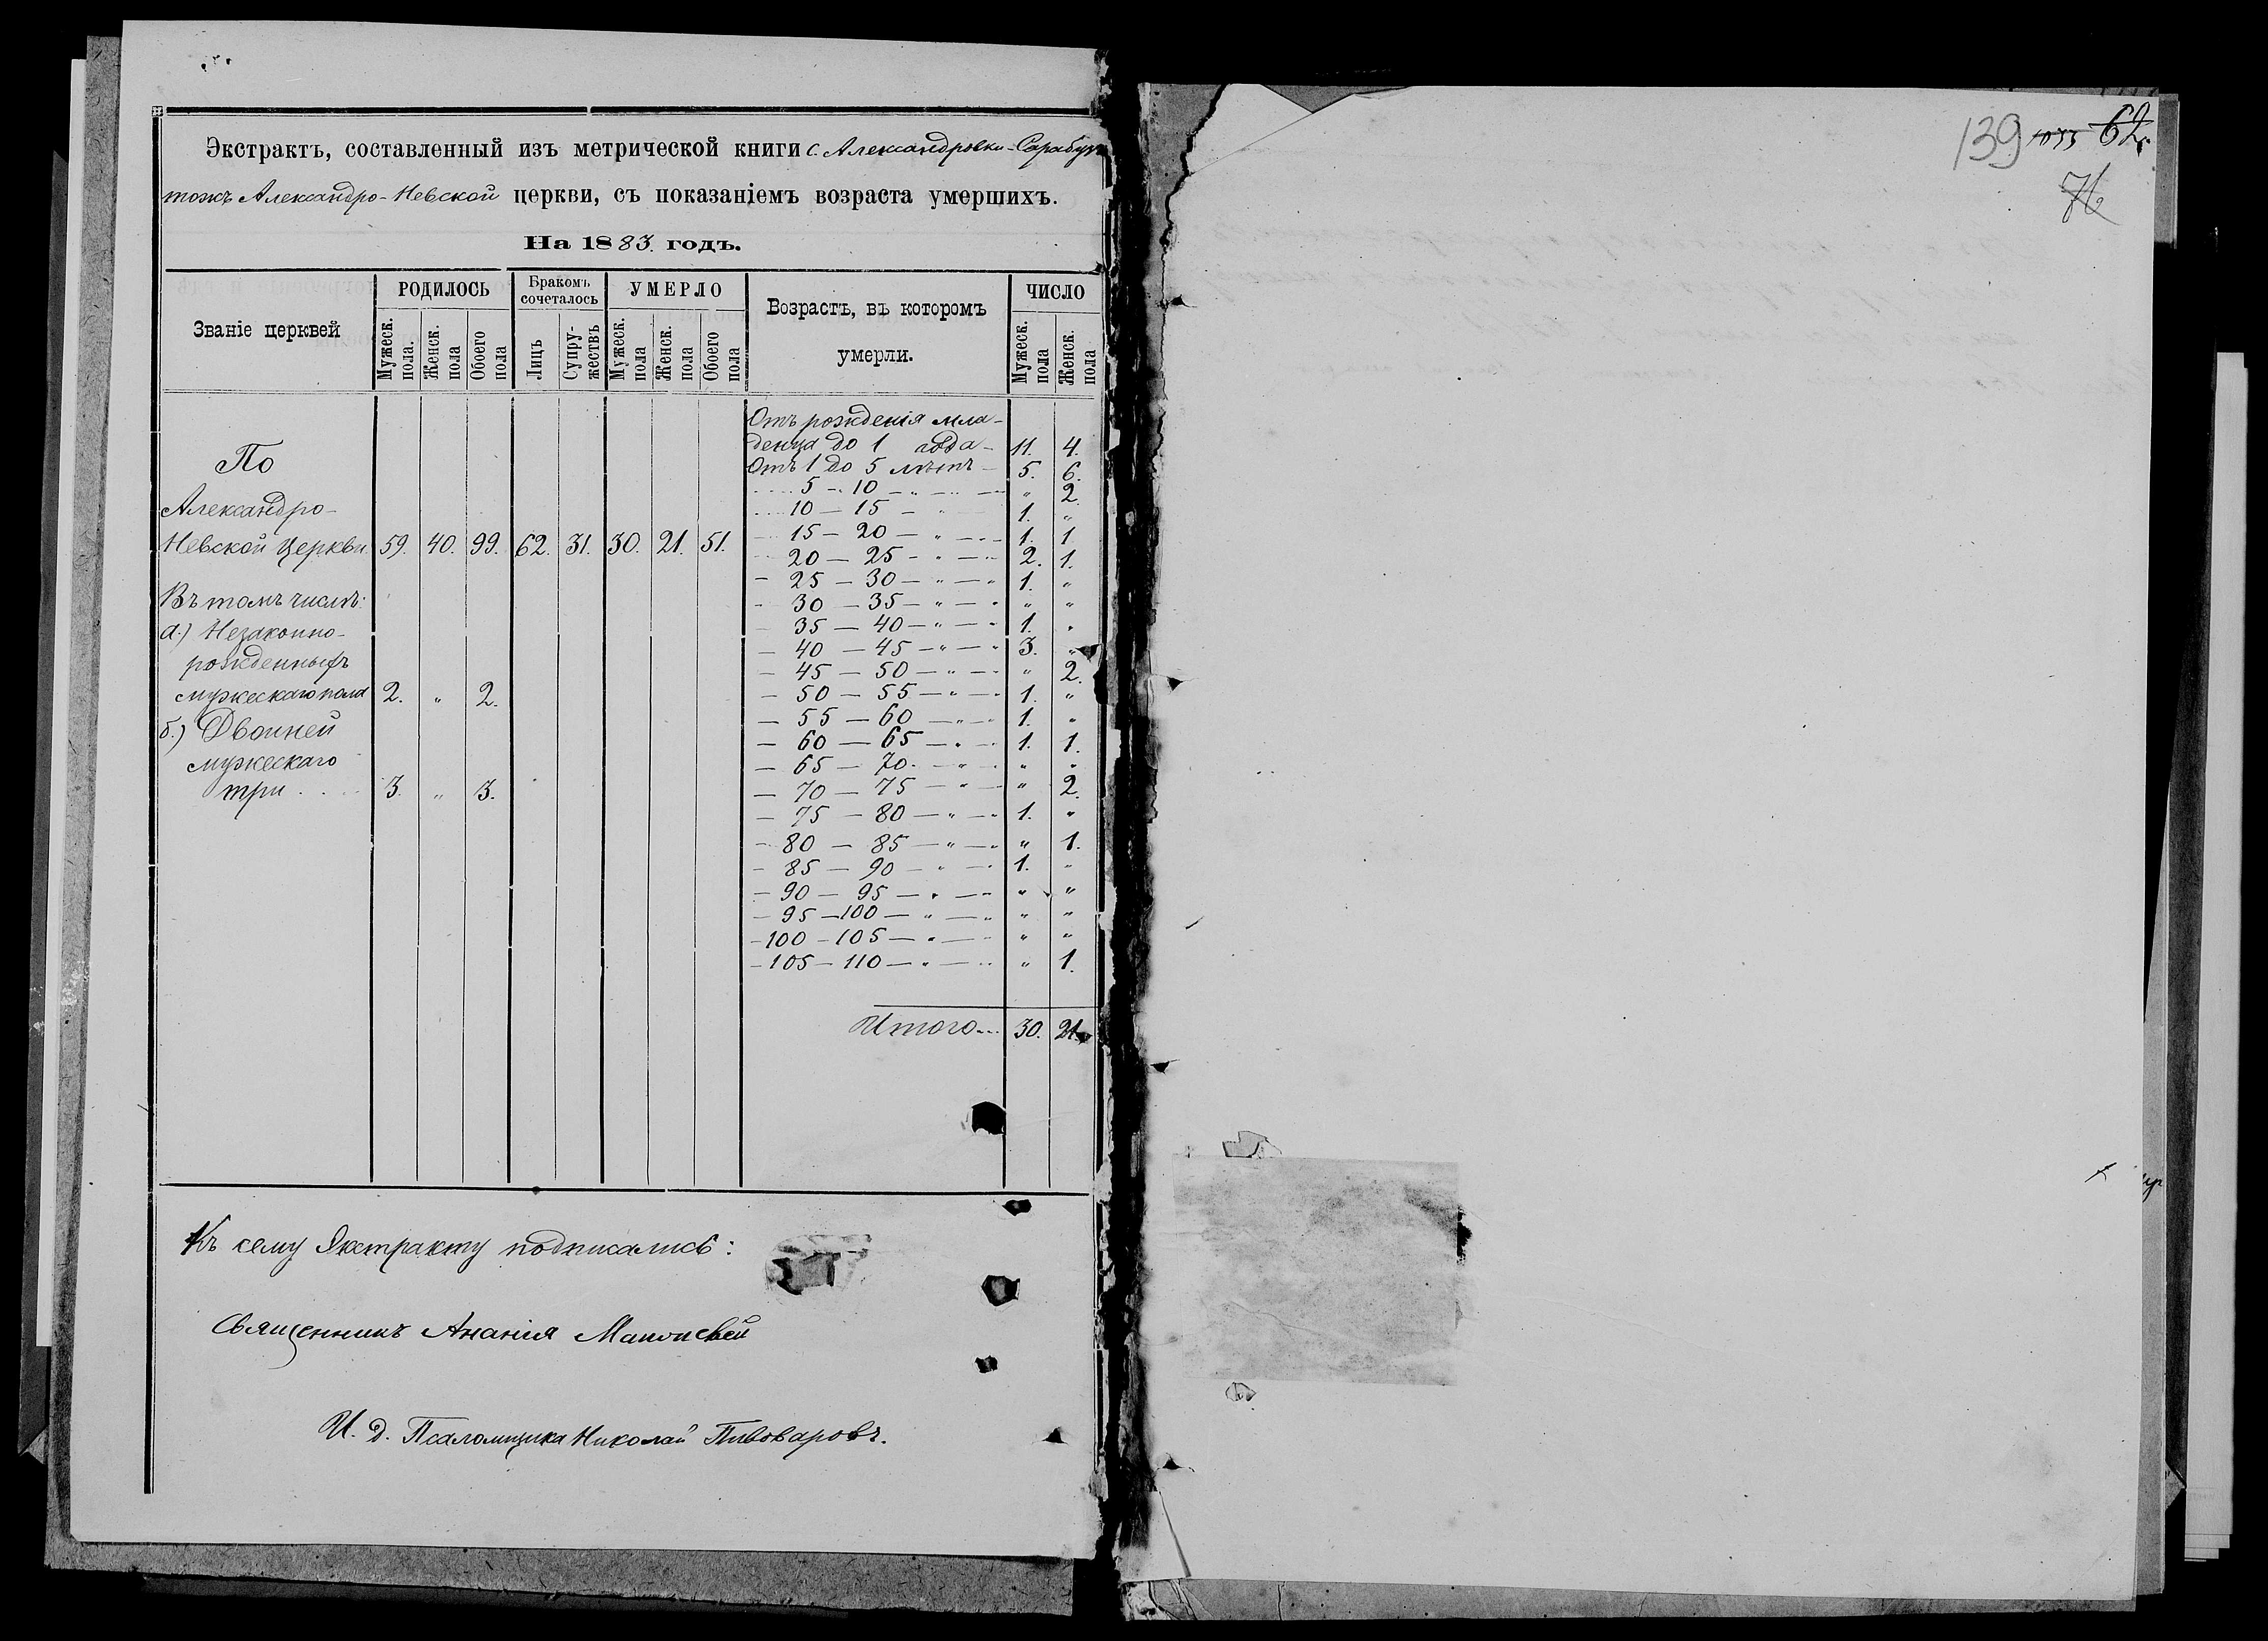 Экстрактъ, составленный изъ метрической книги с. Александровки-Сарабузъ
тожъ Александро-Невской церкви, съ показаніемъ возраста умершихъ.
На 1883. годъ.
Званіе церквей
РОДИЛОСЬ
Мужеск. пола.
Женск. пола
Обоего пола
Бракомъ сочеталось
Лицъ
Супру-жествъ
УМЕРЛО
Мужеск. пола
Женск. пола
Обоего пола
Возрастъ, въ которомъ
умерли.
ЧИСЛО
Мужеск. пола
Женск. пола
По
Александро-
Невской Церкви. 59. 40. 99. 62. 31. 30. 21. 51.
Въ томъ числѣ:
а.) Незаконно-
рожденныхъ
мужескаго пола 2. " 2.
б.) Двойней
мужескаго
три . . . 3. " 3.
Отъ рожденія мла-
денца до 1 года - 11. 4.
Отъ 1 до 5 лѣтъ - 5. 6.
5 - 10 - " - " 2.
10 - 15 - " 1. "
15 - 20 - " - 1. 1
20 - 25 - " - 2. 1.
- 25 - 30 - " - " 1. "
- 30 - 35 - " - " " "
- 35 - 40 - " - " 1. "
- 40 - 45 - " - " 3. "
- 45 - 50 - " - " " 2.
- 50 - 55 - " - " 1. "
- 55 - 60 - " - " 1. "
- 60 - 65 - " - " 1. 1.
- 65 - 70. - " - " " "
- 70 - 75 - " - " " 2.
- 75 - 80 - " - " 1. "
- 80 - 85 - " - " " 1.
- 85 - 90 - " - " 1. "
- 90 - 95 - " - " " "
- 95 - 100 - " - " " "
- 100 - 105 - " - " " "
- 105 - 110 - " - " " 1.
Итого... 30. 21.
Къ сему Экстракту подписались:
Священникъ Ананія
И. д. Псаломщика Николай Пивоваровъ.
139 62
76